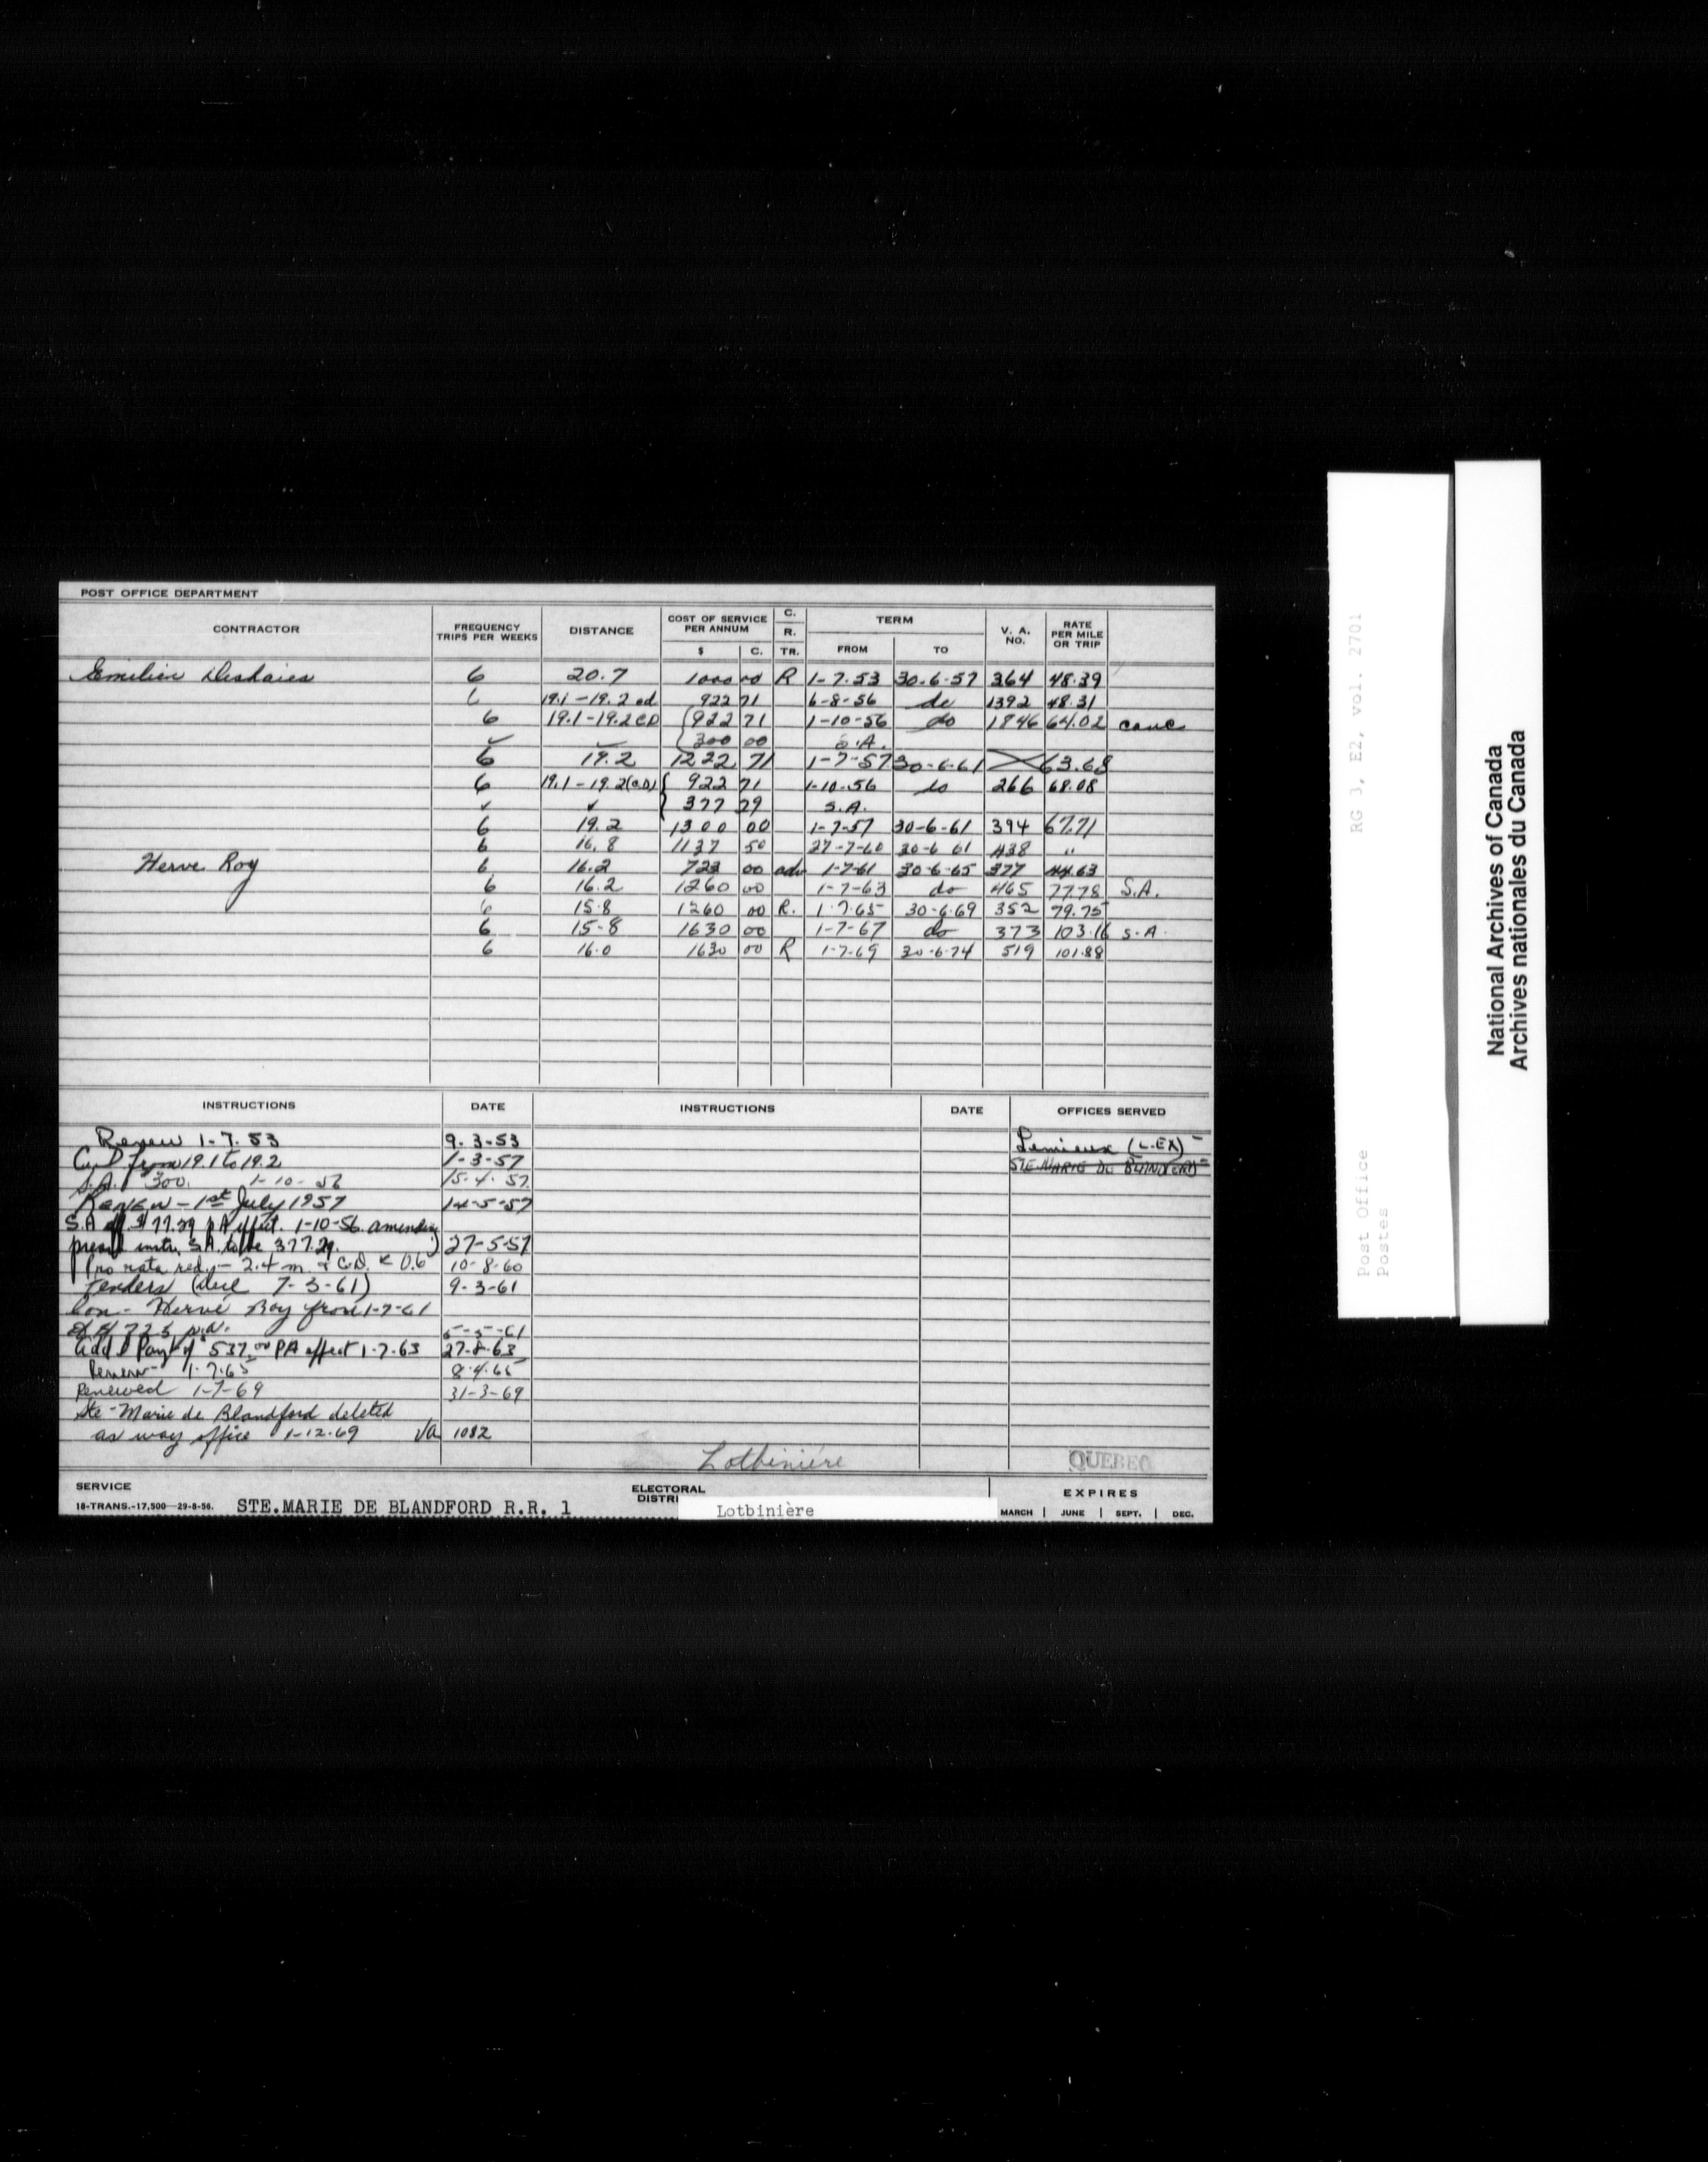 POST OFFICE DEPARTMENT
CONTRACTOR FREQUENCY TRIPS PER WEEKS DISTANCE COST OF SERVICE PER ANNUM $ C. C. R. TR. TERM FROM TO V. A. NO. RATE PER MILE OR TRIP
Emilien Deshaies 6 20.7 1000 00 R 1-7.53 30.6.57 364 48.39
6 19.1-19.2 cd 922 71 6-8-56 do 1392 48.31
6 19.1-19.2 CD 922 71 1-10-56 do 1846 64.02 canc
300 00 S.A.
6 19.2 1222 71 1-7-57 30-6-61 63.68
6 19.1-19.2(CD) 922 71 1-10-56 do 266 68.08
377 29 S.A.
6 19.2 1300 00 1-7-57 30-6-61 394 67.71
6 16.8 1137 50 27-7-60 30-6 61 438 "
Herve Roy 6 16.2 723 00 adv 1-7-61 30-6-65 377 44.63
6 16.2 1260 00 1-7-63 do 465 77.78 S.A.
6 15.8 1260 00 R. 1.7.65 30-6.69 352 79.75
6 15-8 1630 00 1-7-67 do 373 103.16 S.A.
6 16.0 1630 00 R 1-7.69 30-6-74 519 101.88
INSTRUCTIONS DATE INSTRUCTIONS DATE OFFICES SERVED
Renew 1-7.53 9.3-53 Lemieux (L.EX)
C.D. from 19.1 to 19.2 1-3-57 STE. MARIE DE BLANDFORD
S.A. 300. 1-10-56 15-4.57.
Renew - 1st July 1957 14-5-57
S.A. of $77.29 PA effect. 1-10-56 amending
instr. S.A. to be 377.29. 27-5-57
Pro rata red. - 2.4 m. & C.D. 0.6 10-8-60
Tenders (due 7-3-61) 9-3-61
Con- Hervé Roy from 1-7-61
@ $723 p.a. 5-5-61
Add'l Pay't of 537.00 PA effect 1-7-63 27-8-63
Renew 1.7.65 8.4.65
Renewed 1-7-69 31-3-69
Ste-Marie de Blandford deleted
as way office 1-12.69 VA 1082
Lotbinière QUEBEC
SERVICE STE.MARIE DE BLANDFORD R.R. 1 ELECTORAL Lotbinière EXPIRES
18-TRANS.-17,500-29-8-56. MARCH | JUNE | SEPT. | DEC.
RG 3, E2, vol. 2701
Post Office
Postes
National Archives of Canada
Archives nationales du Canada